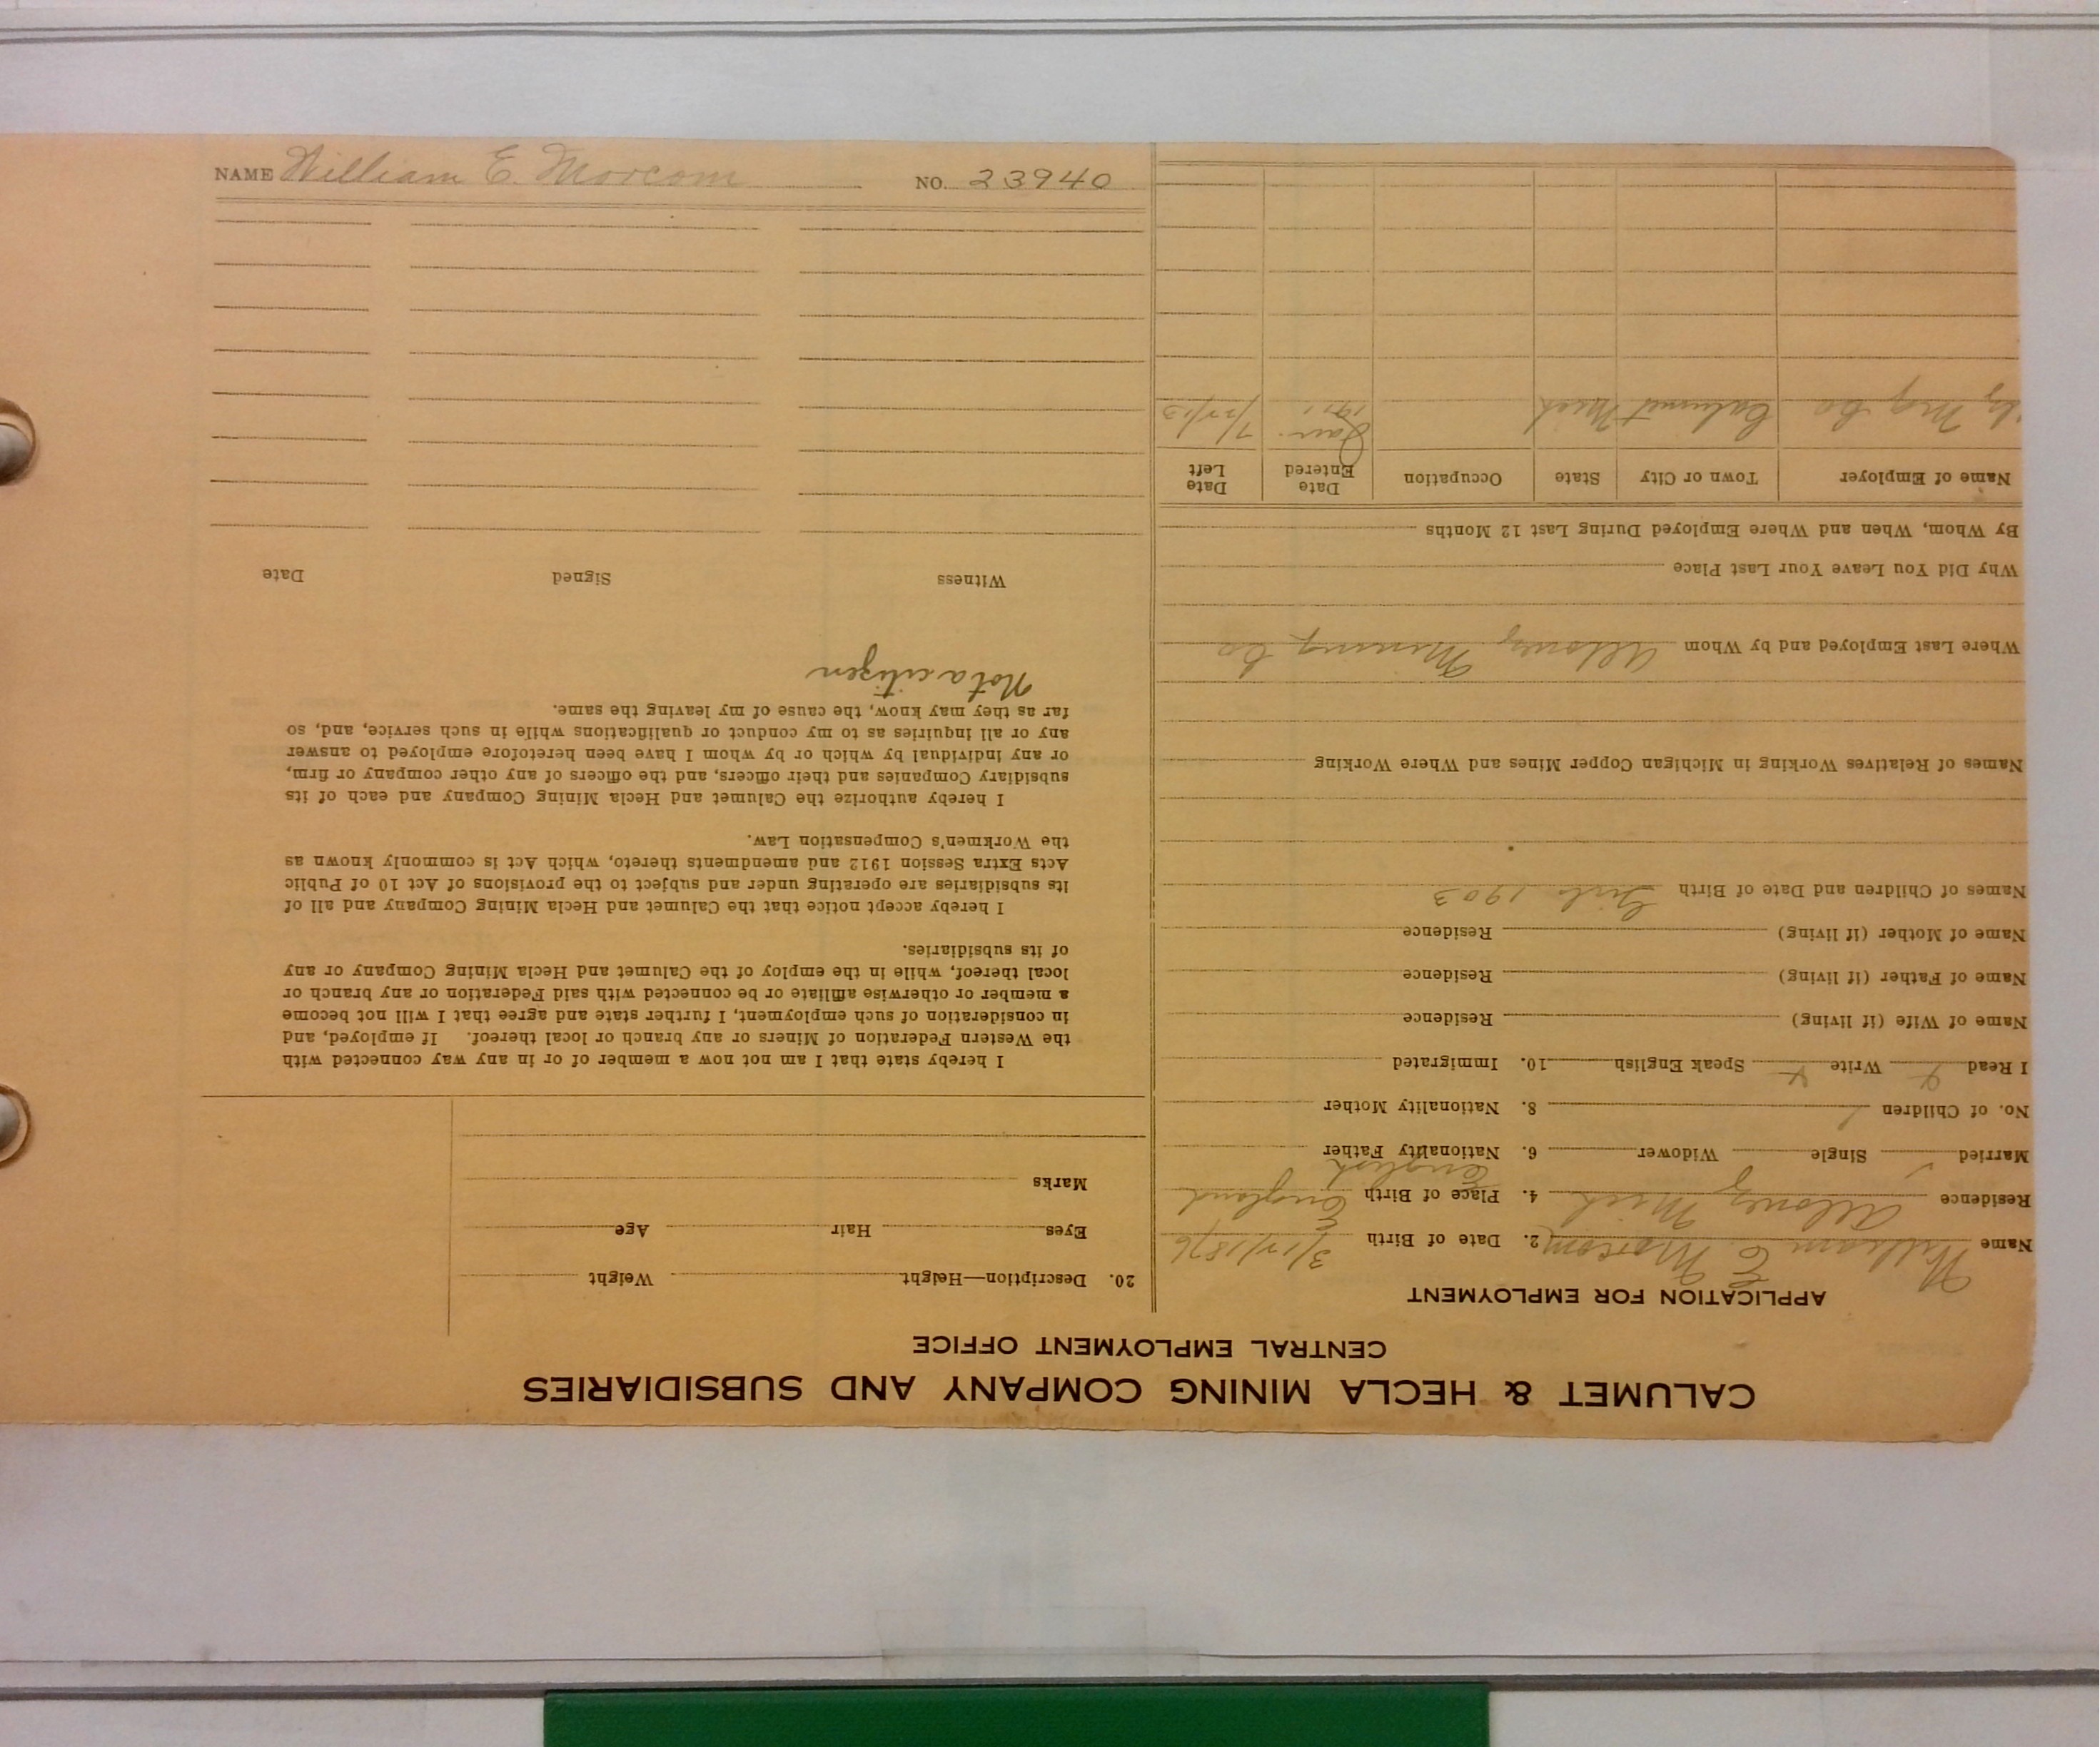 CALUMET & HECLA MINING COMPANY AND SUBSIDIARIES
CENTRAL EMPLOYMENT OFFICE
APPLICATION FOR EMPLOYMENT
Name William E. Morcom 2. Date of Birth 3/17/1876
Residence Allouez Mich 4. Place of Birth England
Married Single Widower 6. Nationality Father English
No. of Children 1 8. Nationality Mother
I Read Write Speak English 10. Immigrated
Name of Wife (if living) Residence
Name of Father (if living) Residence
Name of Mother (if living) Residence
Names of Children and Date of Birth Girl 1903
Names of Relatives Working in Michigan Copper Mines and Where Working
Where Last Employed and by Whom Mining Co
Why Did You Leave Your Last Place
By Whom, When and Where Employed During Last 12 Months
Name of Employer Town or City State Occupation Date Entered Date Left
Mg Co Calumet Mich 1911
20. Description—Height Weight
Eyes Hair Age
Marks
I hereby state that I am not now a member of or in any way connected with
the Western Federation of Miners or any branch or local thereof. If employed, and
in consideration of such employment, I further state and agree that I will not become
a member or otherwise affiliate or be connected with said Federation or any branch or
local thereof, while in the employ of the Calumet and Hecla Mining Company or any
of its subsidiaries.
I hereby accept notice that the Calumet and Hecla Mining Company and all of
its subsidiaries are operating under and subject to the provisions of Act 10 of Public
Acts Extra Session 1912 and amendments thereto, which Act is commonly known as
the Workmen's Compensation Law.
I hereby authorize the Calumet and Hecla Mining Company and each of its
subsidiary Companies and their officers, and the officers of any other company or firm,
or any individual by which or by whom I have been heretofore employed to answer
any or all inquiries as to my conduct or qualifications while in such service, and, so
far as they may know, the cause of my leaving the same.
Not a citizen
Witness Signed Date
NAME William E. Morcom NO. 23940